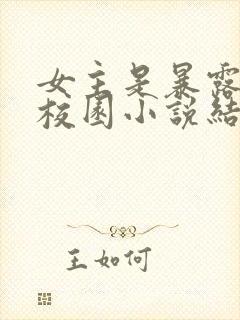 女主是暴露
校園小說結
王如何